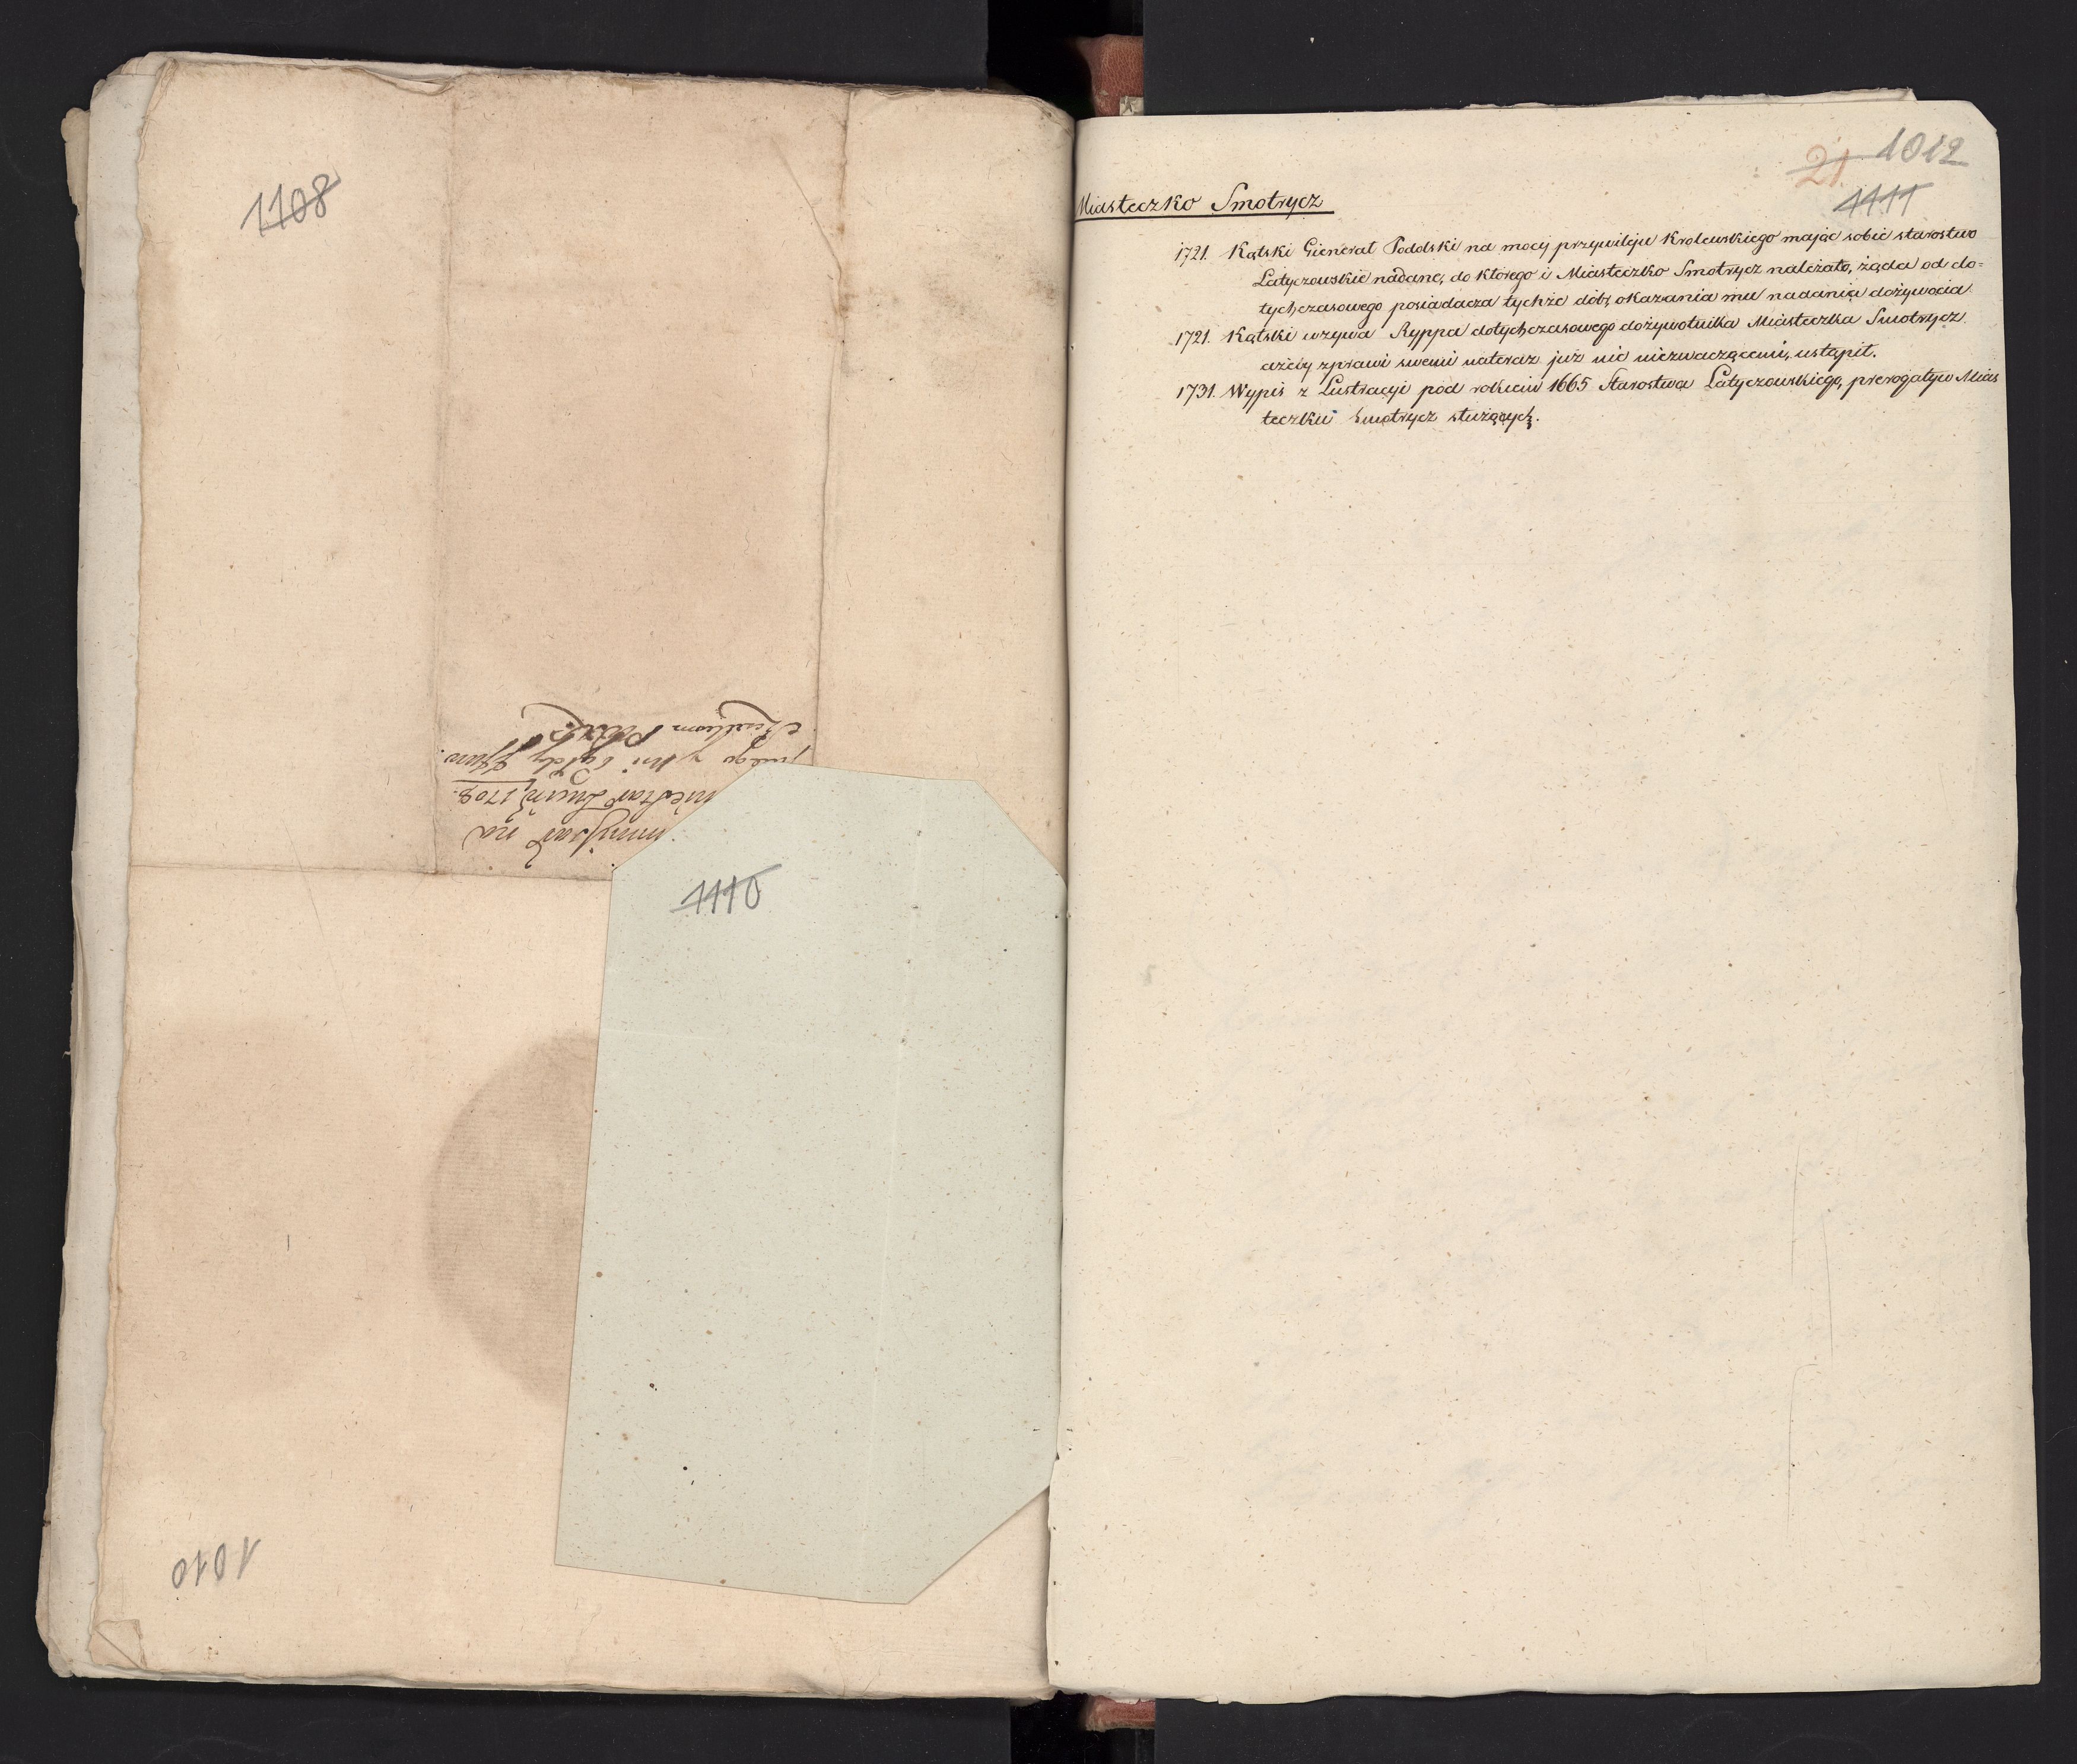 1108
1110
1010
21 1012
1111
Miasteczko Smotrycz
1721. Kątski Gienerał Podolski na mocy przywileju Krolewskiego mając sobie starostwo
Latyczowskie nadane, do którego i Miasteczko Smotrycz należało, żąda od do=
tychczasowego posiadacza tychże dóbr, okazania mu nadania dożywocia.
1721. Kątski wzywa Ryppa dotychczasowego dożywotnika Miasteczka Smotrycz
ażeby z prawi swemi nateraz już nic nieznaczącemi, ustąpił.
1731. Wypis z Lustracyi pod rokiem 1665 Starostwa Latyczowskiego, prerogatyw Mias
teczku Smotrycz służących.